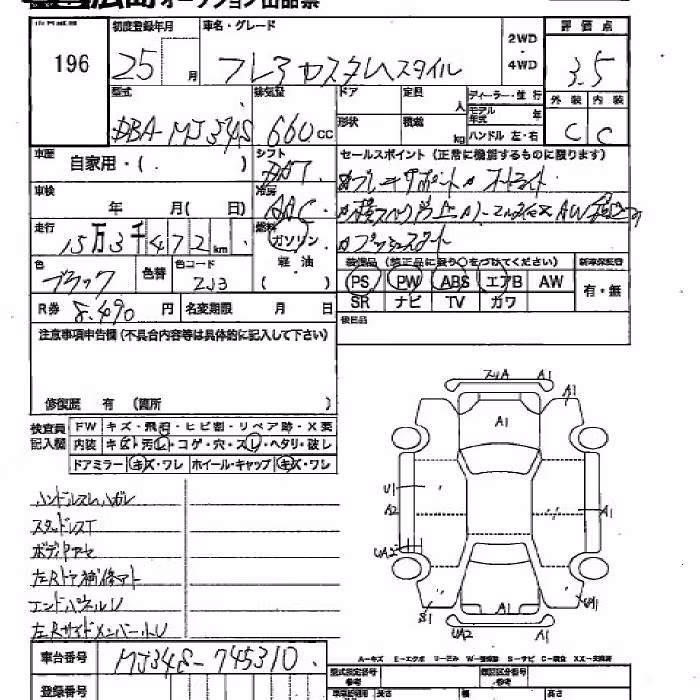 広島オークション出品票
196
初度登録年月
25 月
車名・グレード
フレアカスタムスタイル
2WD
・
4WD
評価点
3.5
型式
DBA-MJ34S
排気量
660cc
ドア
定員
人
ディーラー・並行
モデル年式 年
形状
積載
kg
ハンドル 左・右
外装 内装
C C
車歴
自家用・( )
シフト
セールスポイント (正常に機能するものに限ります)
車検
年 月( 日)
冷房
AAC
走行
15万3千472km
燃料
ガソリン
軽・油
( )
プッシュスタート
色
ブラック
色替
色コード
ZJ3
装備品 (純正品に限り○をつけてください)
新車保証書
PS PW ABS エアB AW
SR ナビ TV カワ
有・無
R券 8,490円
名変期限 月 日
後日品
注意事項申告欄 (不具合内容等は具体的に記入して下さい)
修復歴 有 (箇所 )
検査員記入欄
FW キズ・飛石・ヒビ割・リペア跡・X要
内装 キズ・汚レ・コゲ・穴・スレ・ヘタリ・破レ
ドアミラー キズ・ワレ ホイール・キャップ キズ・ワレ
ハンドルスレハガレ
スタッドレスT
ボディ色アセ
左Rドア補修アト
エンドパネルU
左RサイドメンバーホU
スリA A1
A1
A1
U1
A2
A1
UA2
S1
A1
UA1
UA2 A1
車台番号 MJ34S-745310
登録番号
A→キズ E→エクボ U→凹み W→補修跡 S→サビ C→腐食 XX→交換済
型式指定番号
参考
類別区分番号
参考
長さ 幅 高さ